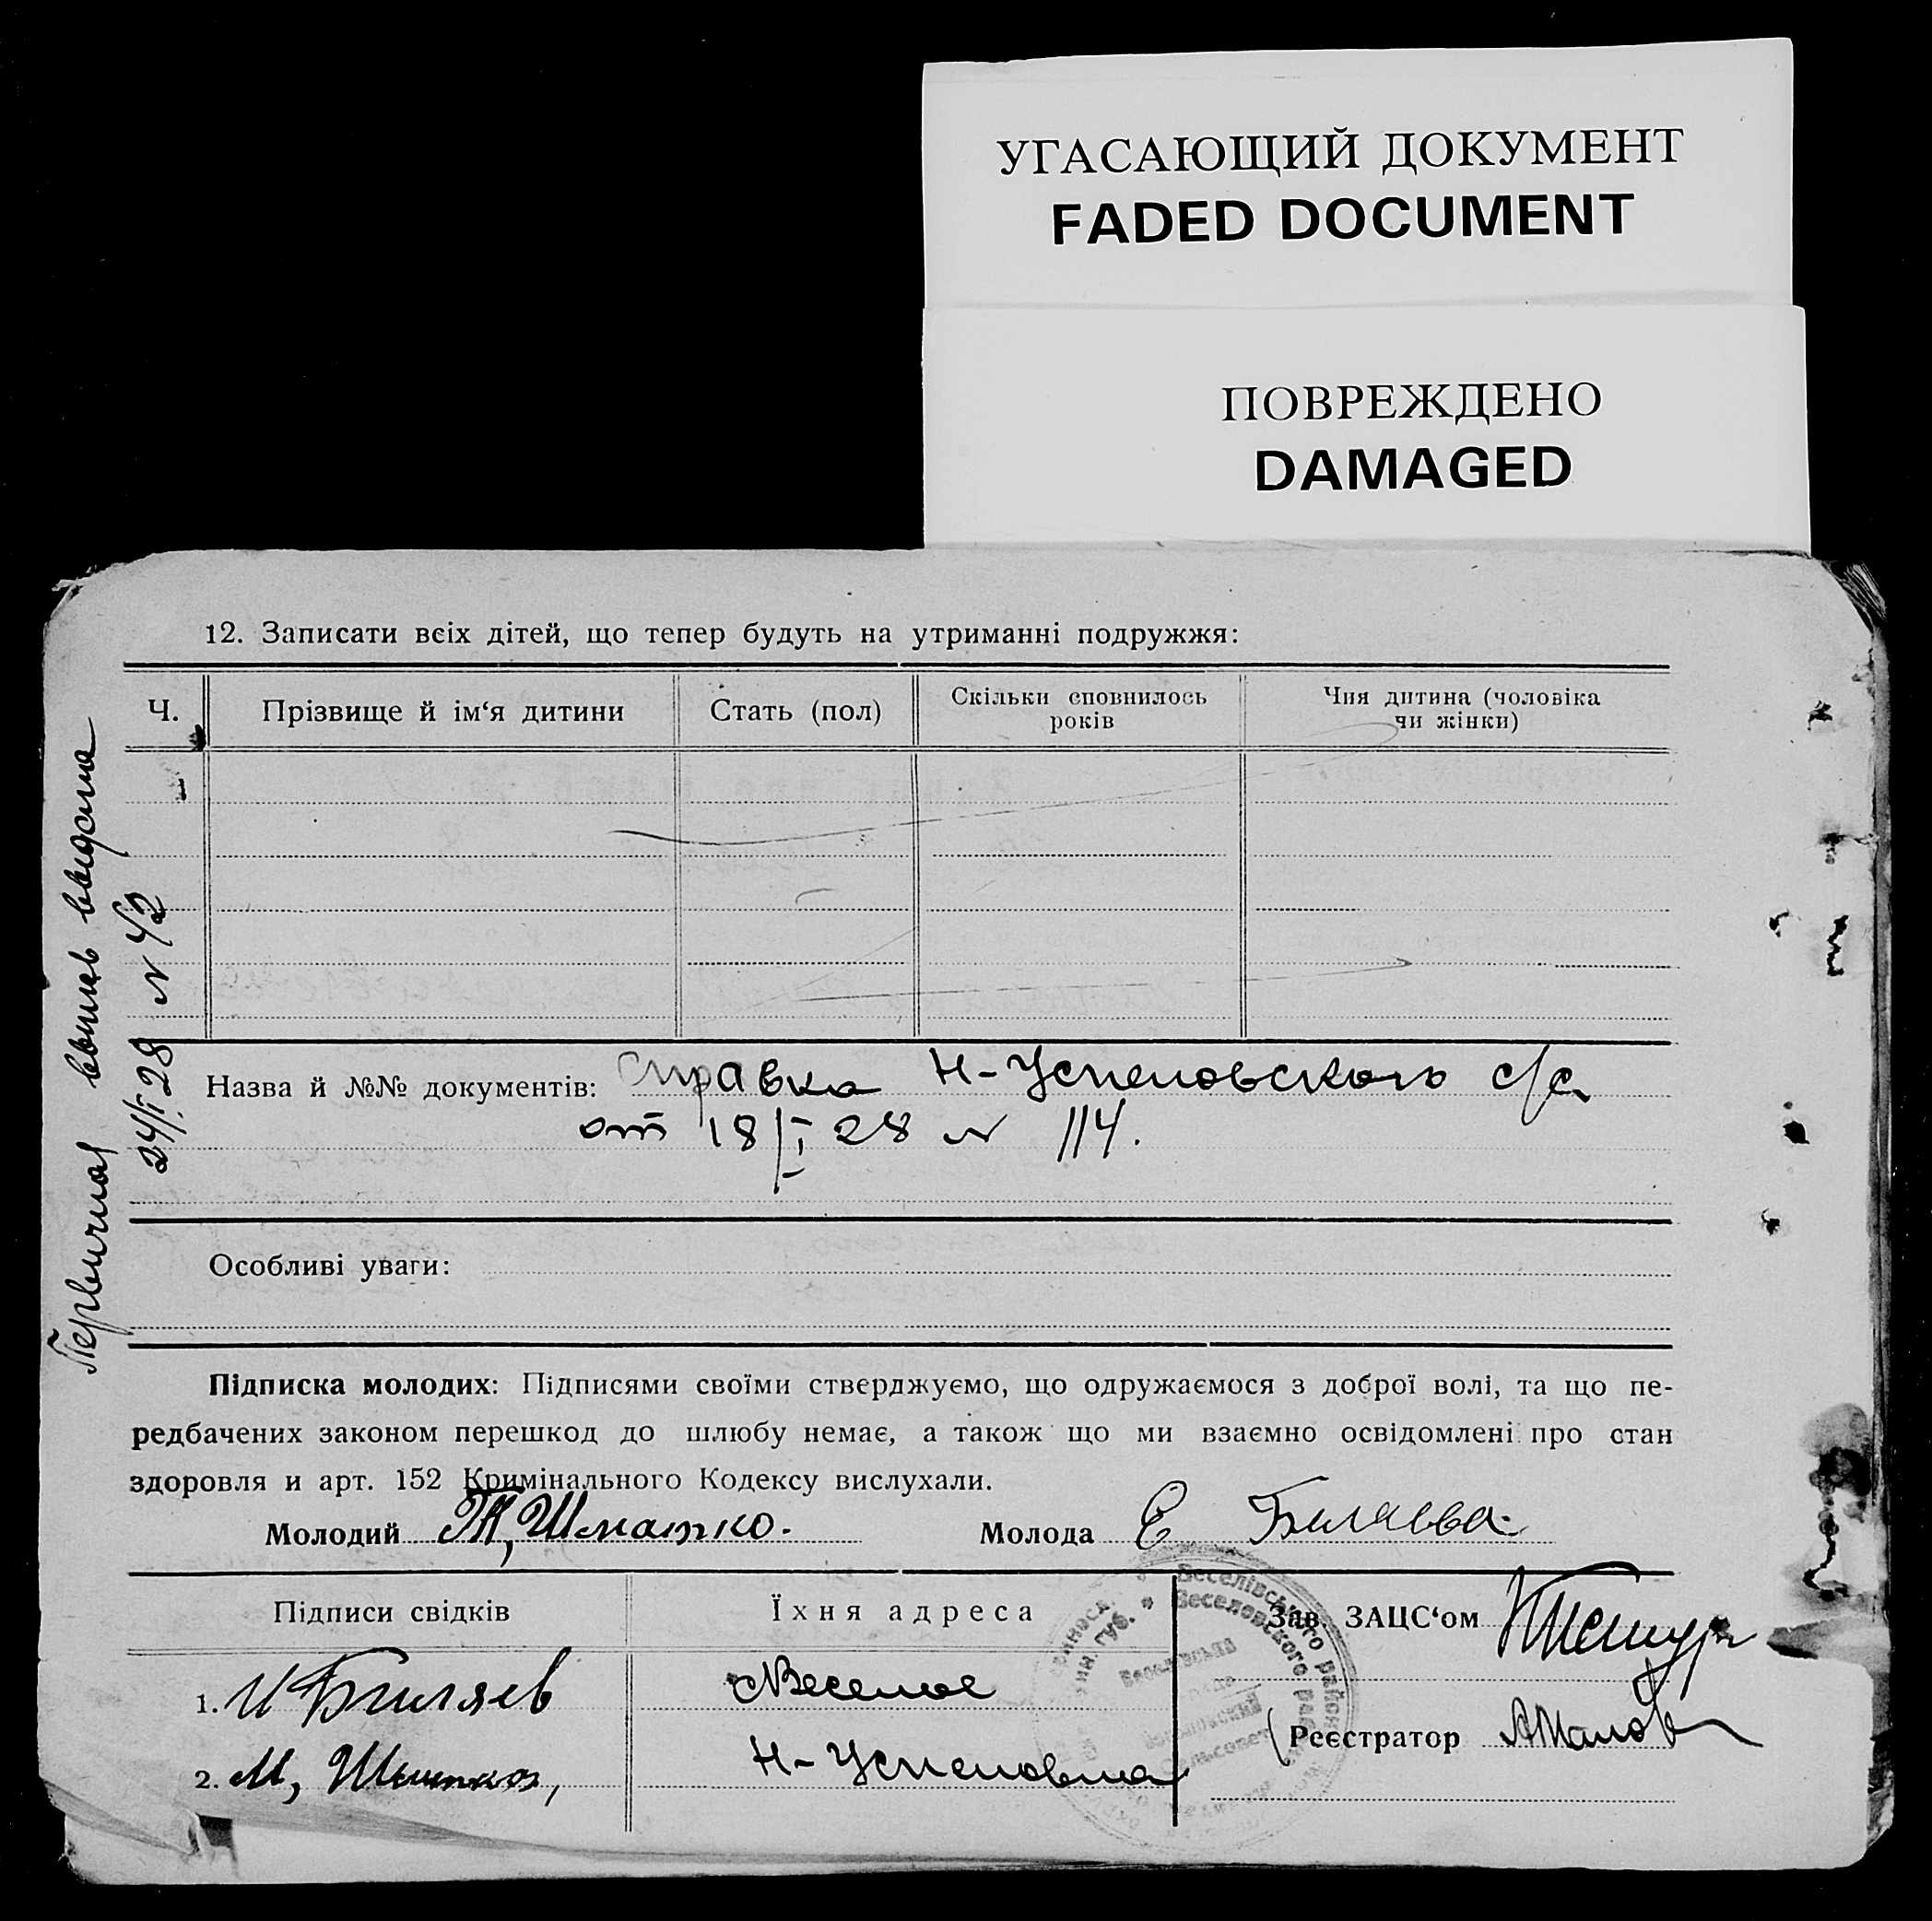 УГАСАЮЩИЙ ДОКУМЕНТ
FADED DOCUMENT
ПОВРЕЖДЕНО
DAMAGED
12. Записати всіх дітей, що тепер будуть на утриманні подружжя:
Ч.
Прізвище й ім‘я дитини
Стать (пол)
Скільки сповнилось
років
Чия дитина (чоловіка
чи жінки)
Назва й №№ документів: справка Н-Успеновского с/с
от 18/I 28 N 114.
Особливі уваги:
Підписка молодих: Підписями своїми стверджуємо, що одружаємося з доброї волі, та що пе-
редбачених законом перешкод до шлюбу немає, а також що ми взаємно освідомлені про стан
здоровля и арт. 152 Кримінального Кодексу вислухали.
Молодий Шматко. Молода Е Биляева
Підписи свідків
Їхня адреса
Зав. ЗАЦС‘ом
1. И Биляев
Веселое
Реєстратор
2. М, Шматко,
Н-Успеновка
Первичная выпись выдана
24/I 28 N 42
Веселівського район
Веселовского рай